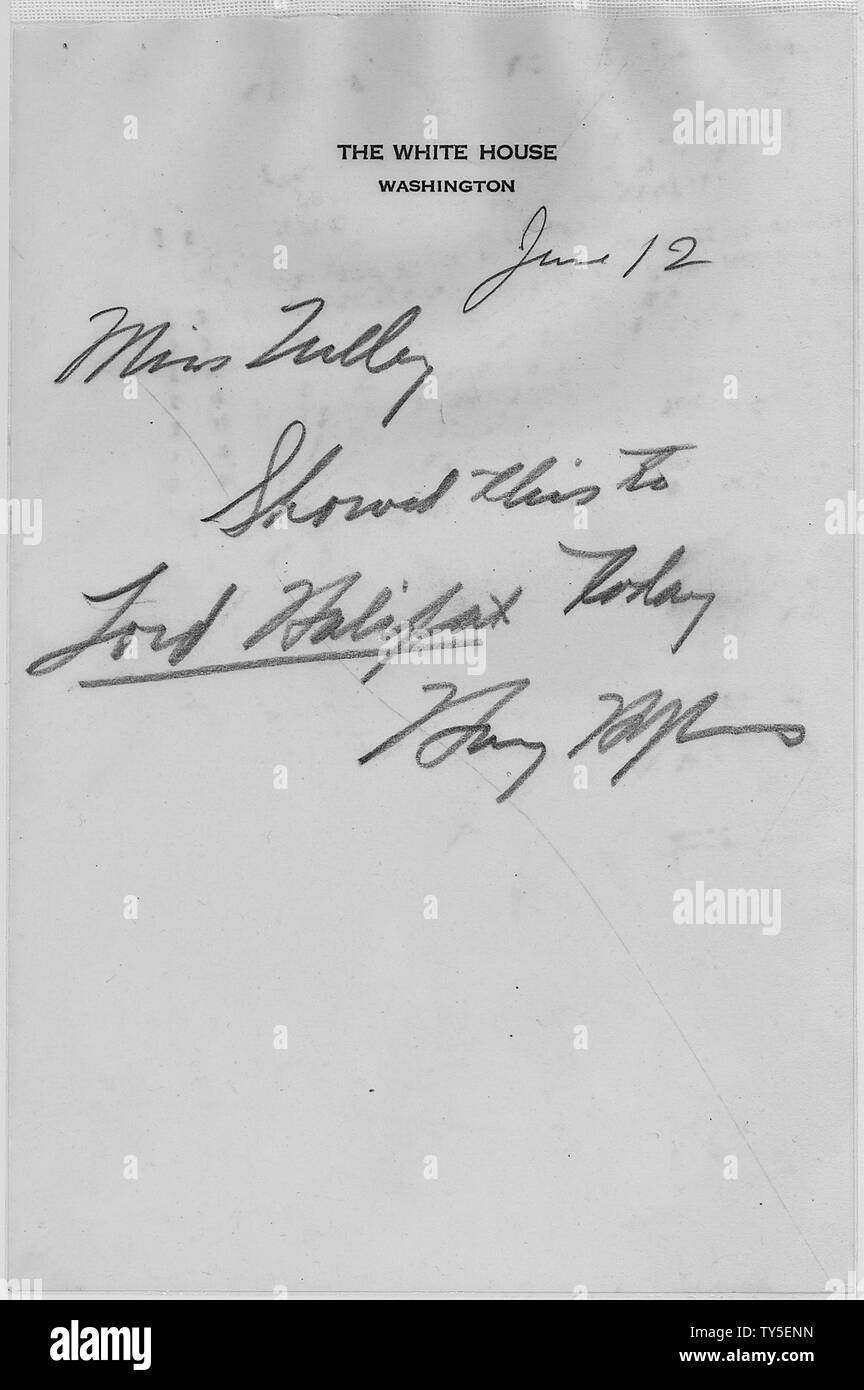 THE WHITE HOUSE
WASHINGTON
June 12
Miss Tulley
Showed this to
Lord Halifax today
Harry Hopkins
alamy
Image ID: TY5ENN
www.alamy.com